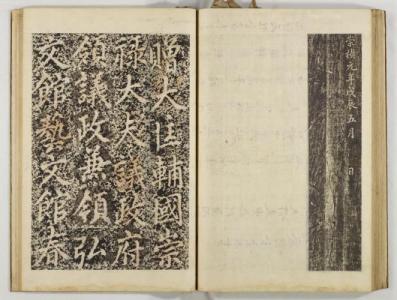 崇禎元年戊辰五月　日
贈大匡輔國崇
祿大夫議政府
領議政兼領弘
文館藝文館春